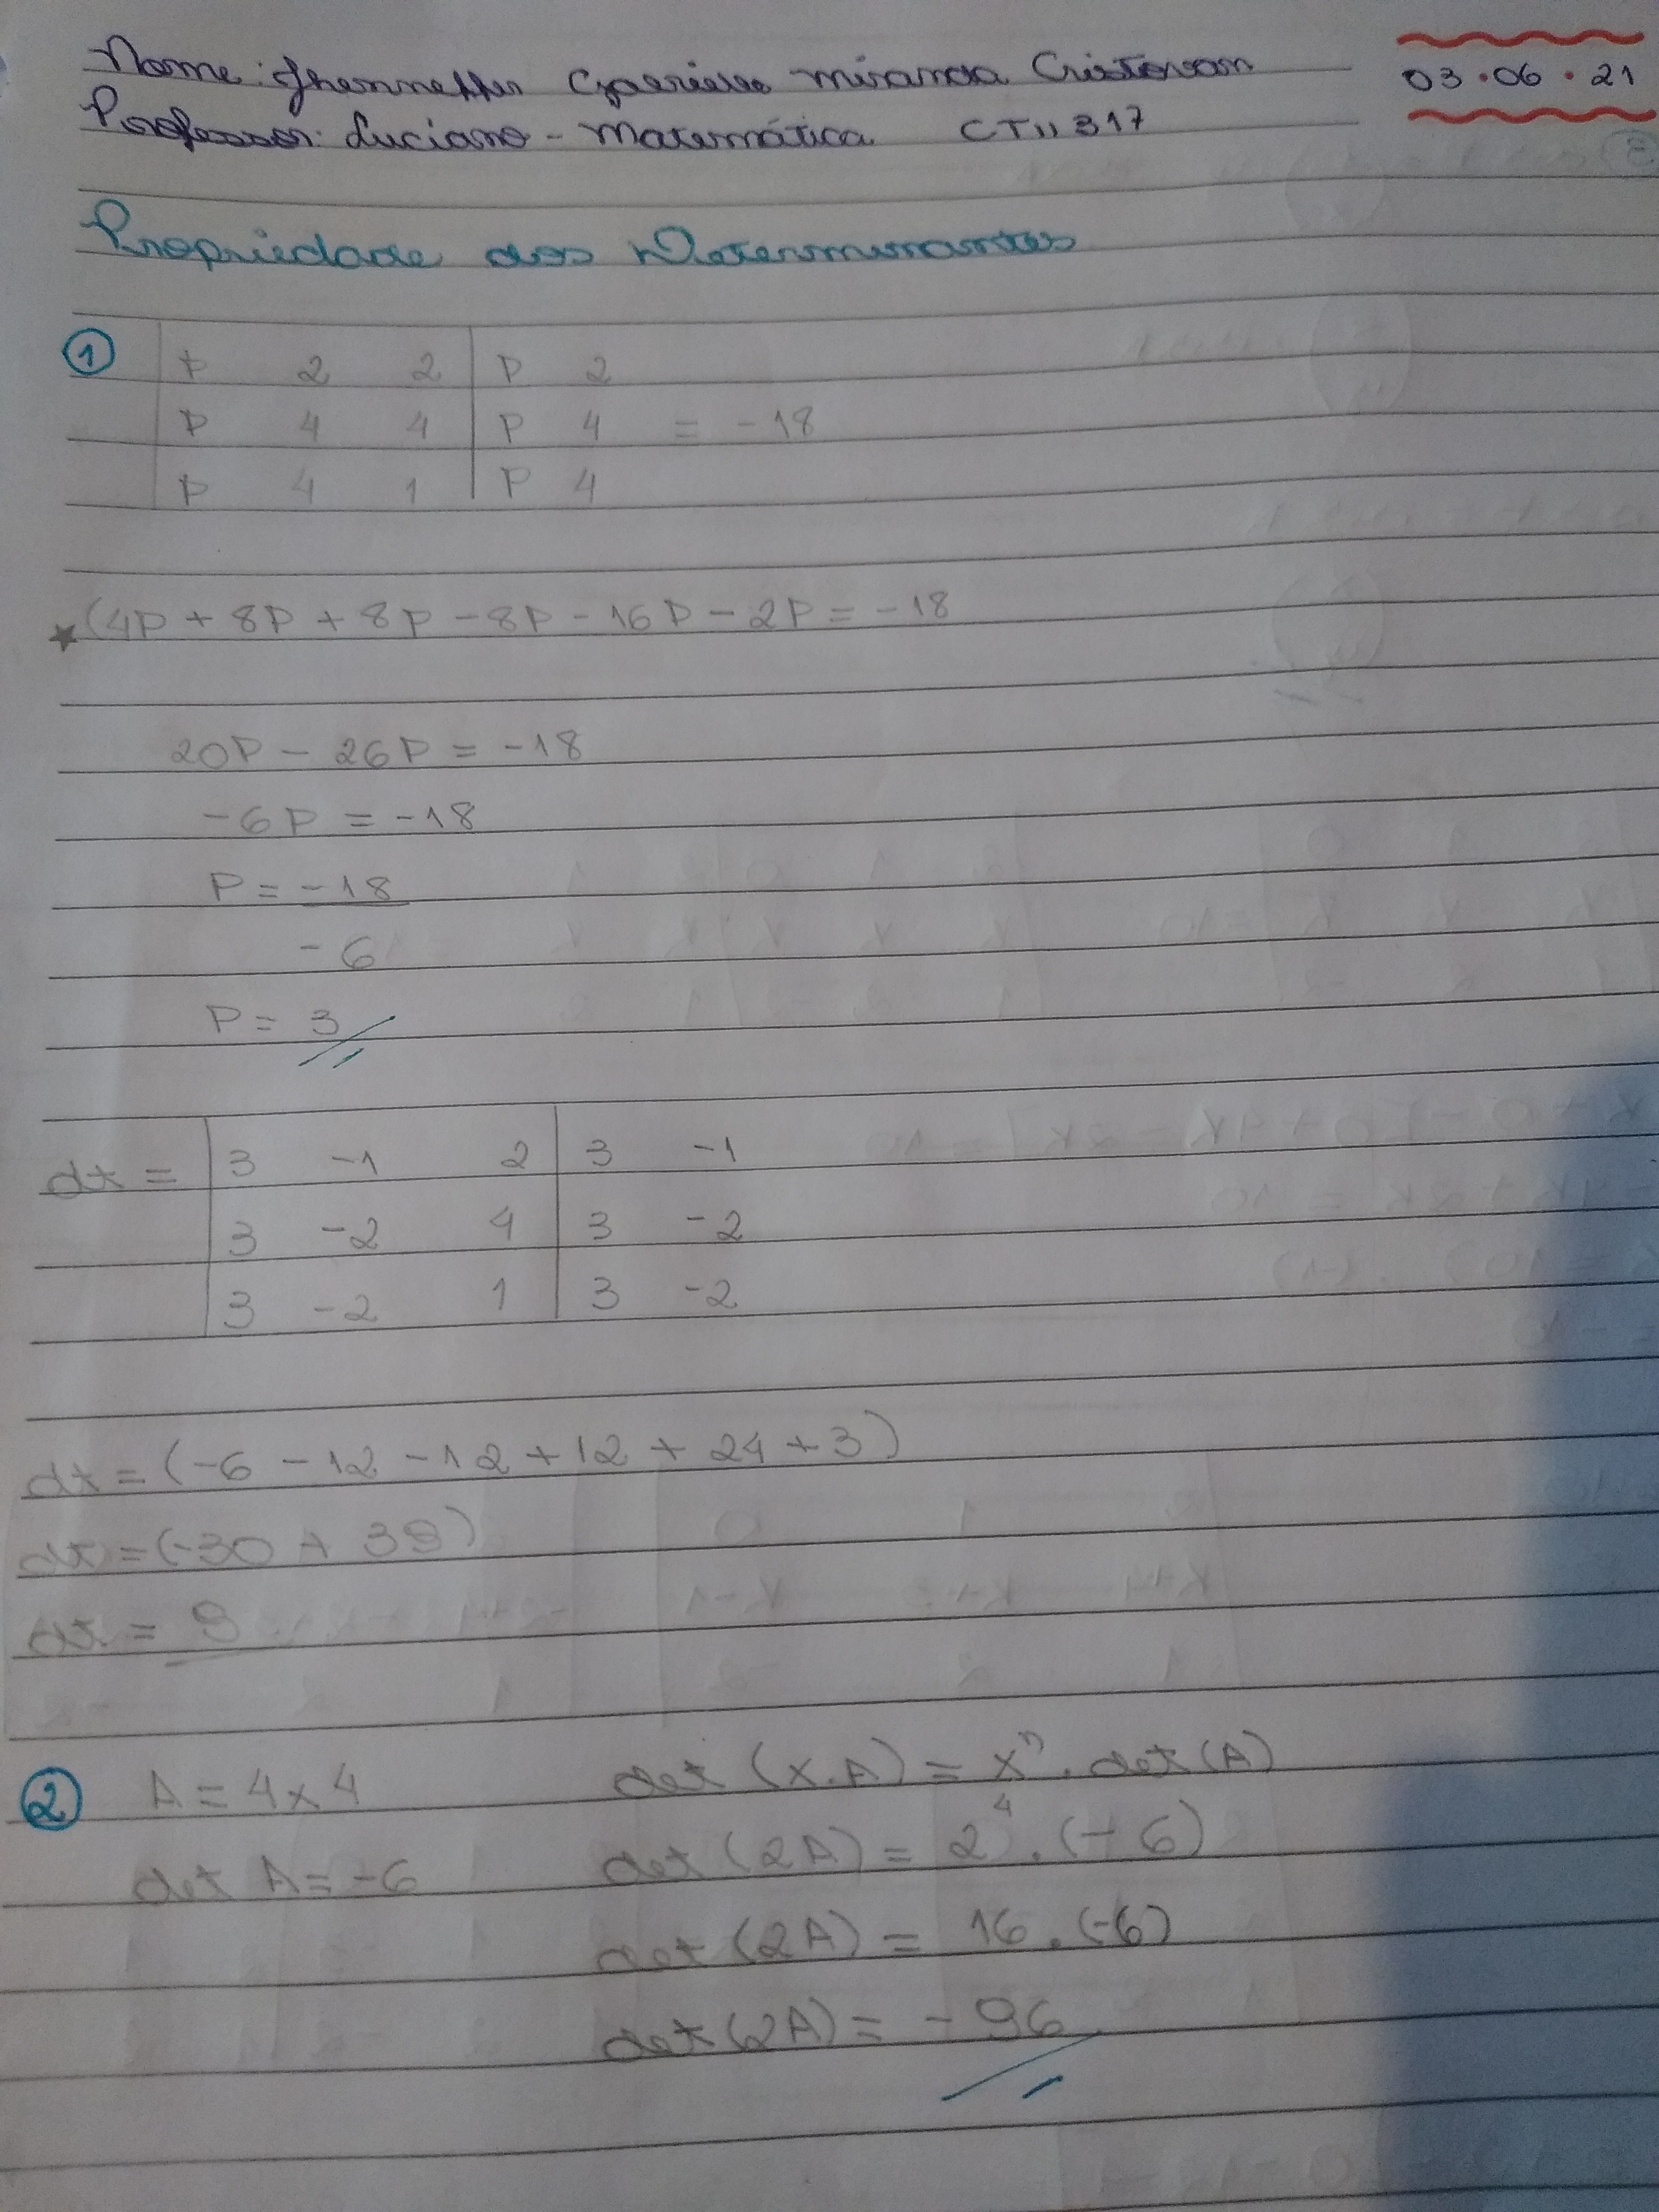 Nome: Jhenneffer Gabrielle Miranda Cristovam
03.06.21
Professor: Luciano - Matemática CTII 317
Propriedade dos Determinantes
1
P 2 2 | P 2
P 4 4 | P 4 = -18
P 4 1 | P 4
(4P + 8P + 8P - 8P - 16P - 2P = -18
20P - 26P = -18
-6P = -18
P = -18
-6
P = 3
dt = | 3 -1 2 | 3 -1
3 -2 4 | 3 -2
3 -2 1 | 3 -2
dt = (-6 - 12 - 12 + 12 + 24 + 3)
dt = (-30 + 39)
dt = 9
2 A = 4x4 det (x.A) = xⁿ . det (A)
det A = -6 det (2A) = 2⁴ . (-6)
det (2A) = 16 . (-6)
det (2A) = -96